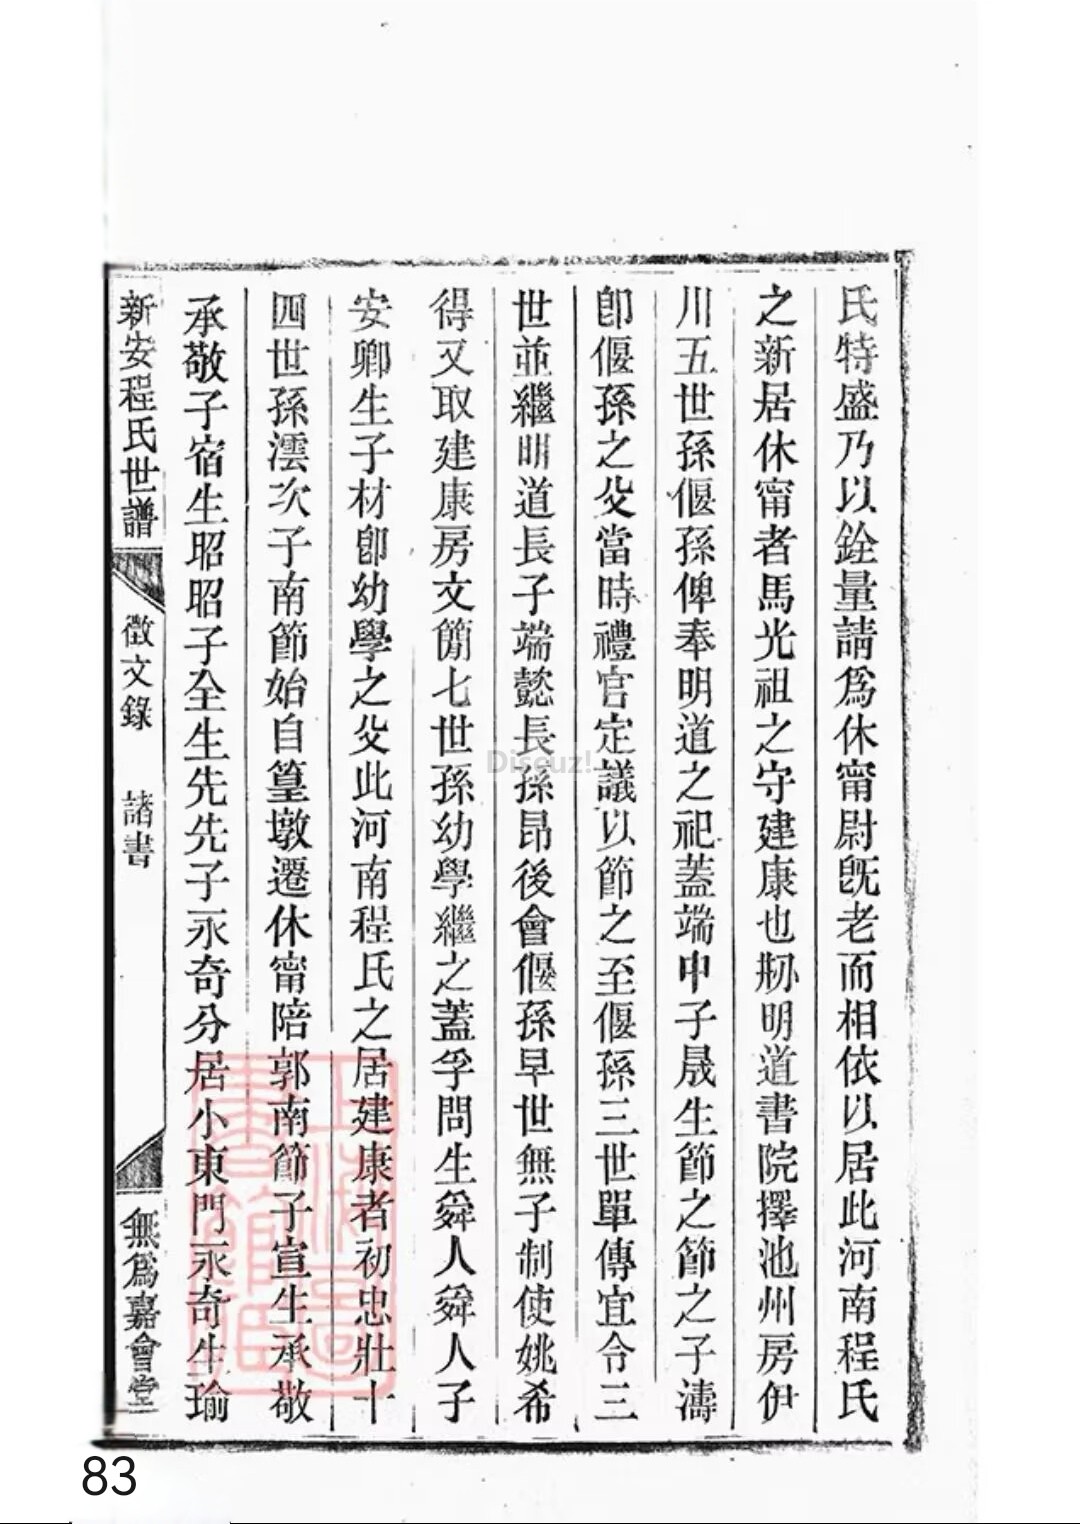 氏特盛乃以銓量請爲休甯尉旣老而相依以居此河南程氏
之新居休甯者馬光祖之守建康也剏明道書院擇池州房伊
川五世孫偃孫俾奉明道之祀蓋端中子晟生節之節之子濤
卽偃孫之父當時禮官定議以節之至偃孫三世單傳宜令三
世並繼明道長子端懿長孫昂後會偃孫早世無子制使姚希
得又取建康房文簡七世孫幼學繼之蓋孚問生舜人舜人子
安卿生子材卽幼學之父此河南程氏之居建康者初忠壯十
四世孫澐次子南節始自篁墩遷休甯陪郭南節子宣生承敬
承敬子宿生昭昭子全生先先子永奇分居小東門永奇生瑜
新安程氏世譜
徵文錄
諸書
無爲嘉會堂
Discuz!
83